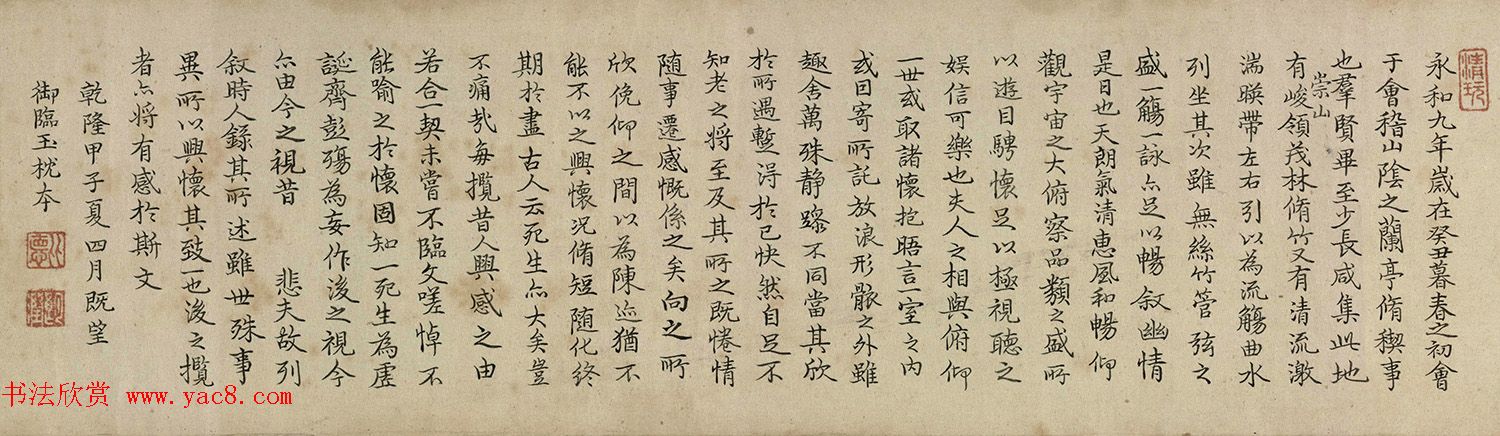 清玩
永和九年歲在癸丑暮春之初會
于會稽山陰之蘭亭脩禊事
也羣賢畢至少長咸集此地
有峻領茂林脩竹又有清流激
崇山
湍暎帶左右引以為流觴曲水
列坐其次雖無絲竹管弦之
盛一觴一詠亦足以暢叙幽情
是日也天朗氣清惠風和暢仰
觀宇宙之大俯察品類之盛所
以遊目騁懷足以極視聽之
娛信可樂也夫人之相與俯仰
一世或取諸懷抱晤言一室之內
或因寄所託放浪形骸之外雖
趣舍萬殊静躁不同當其欣
於所遇蹔得於己快然自足不
知老之將至及其所之既惓情
隨事遷感慨係之矣向之所
欣俛仰之間以為陳迹猶不
能不以之興懷況脩短隨化終
期於盡古人云死生亦大矣豈
不痛哉每攬昔人興感之由
若合一契未嘗不臨文嗟悼不
能喻之於懷固知一死生為虛
誕齊彭殤為妄作後之視今
亦由今之視昔 悲夫故列
叙時人錄其所述雖世殊事
異所以興懷其致一也後之攬
者亦將有感於斯文
乾隆甲子夏四月既望
御臨玉枕本
书法欣赏 www.yac8.com